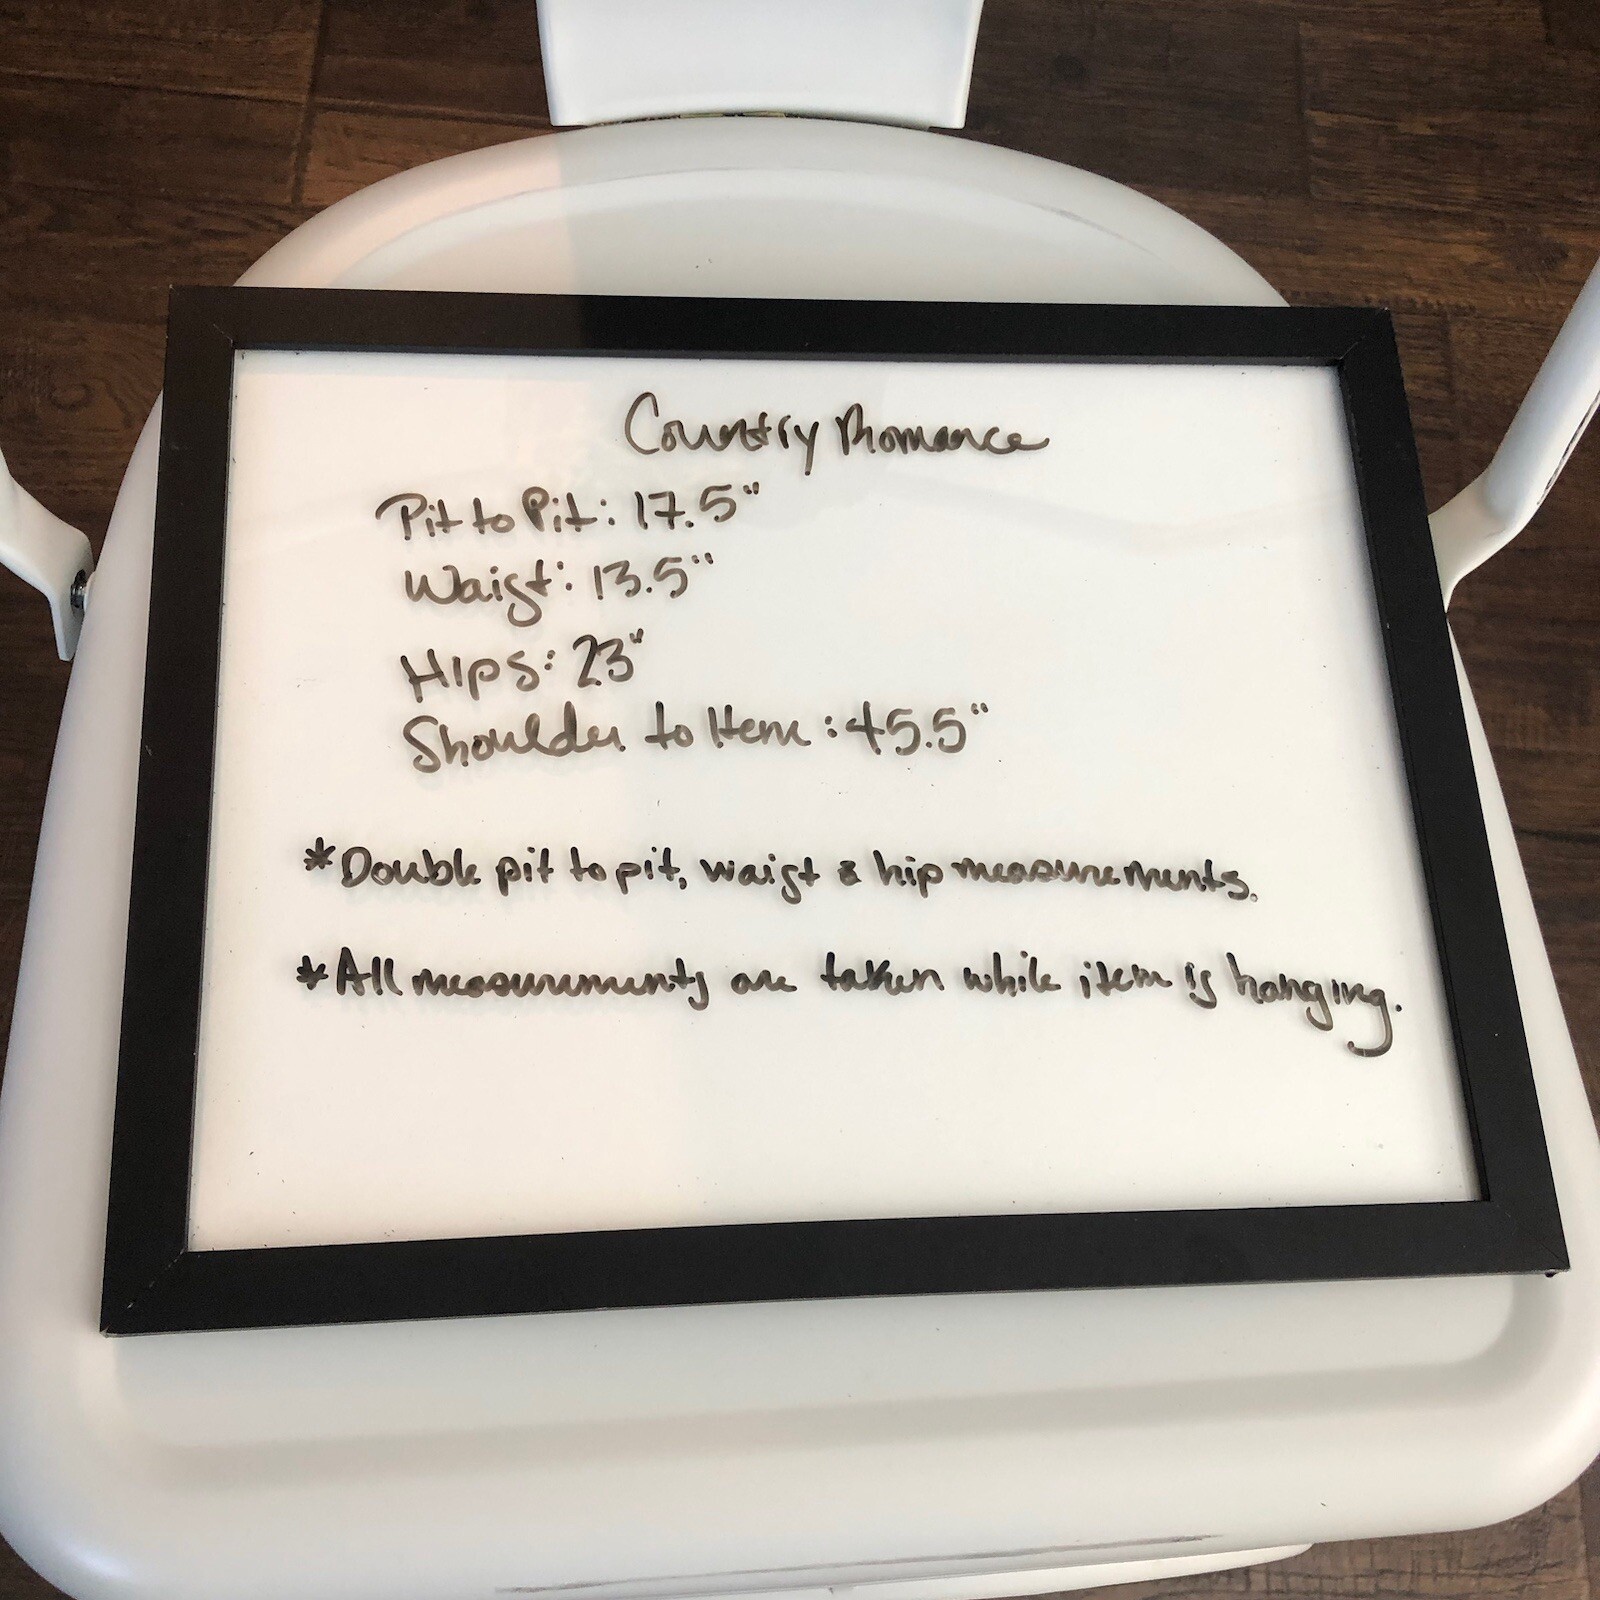 Country Romance
Pit to Pit: 17.5"
Waist: 13.5"
Hips: 23"
Shoulder to Hem: 45.5"
*Double pit to pit, waist & hip measurements.
*All measurements are taken while item is hanging.